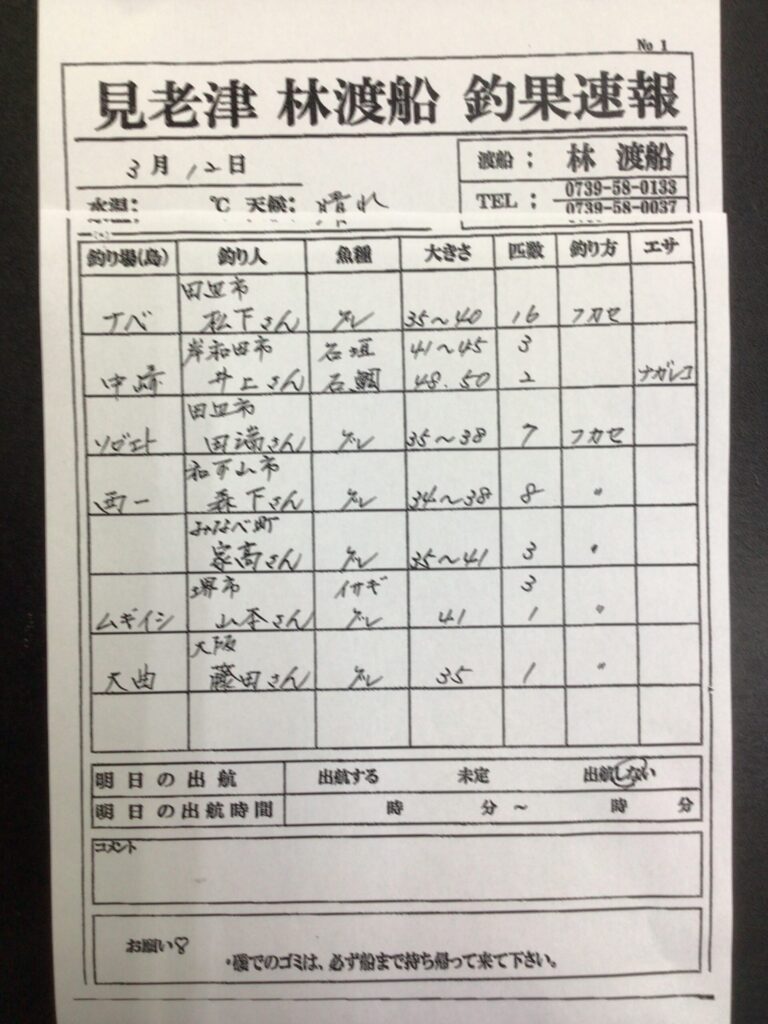 No 1
見老津 林渡船 釣果速報
3月12日
渡船: 林 渡船
水温: ℃ 天候: 晴れ
TEL: 0739-58-0133
0739-58-0037
釣り場(島) 釣り人 魚種 大きさ 匹数 釣り方 エサ
田辺市
ナベ 松下さん グレ 35〜40 16 フカセ
岸和田市 石垣 41〜45 3
中崎 井上さん 石鯛 48.50 2 ナガレコ
田辺市
田端さん グレ 35〜38 7 フカセ
和歌山市
西一 森下さん グレ 34〜38 8 〃
みなべ町
家高さん グレ 35〜41 3 〃
堺市 イサギ 3
ムギイシ 山本さん グレ 41 1 〃
大阪
大曲 藤田さん グレ 35 1 〃
明日の出航 出航する 未定 出航しない
明日の出航時間 時 分 〜 時 分
コメント
お願い
・磯でのゴミは、必ず船まで持ち帰って来て下さい。